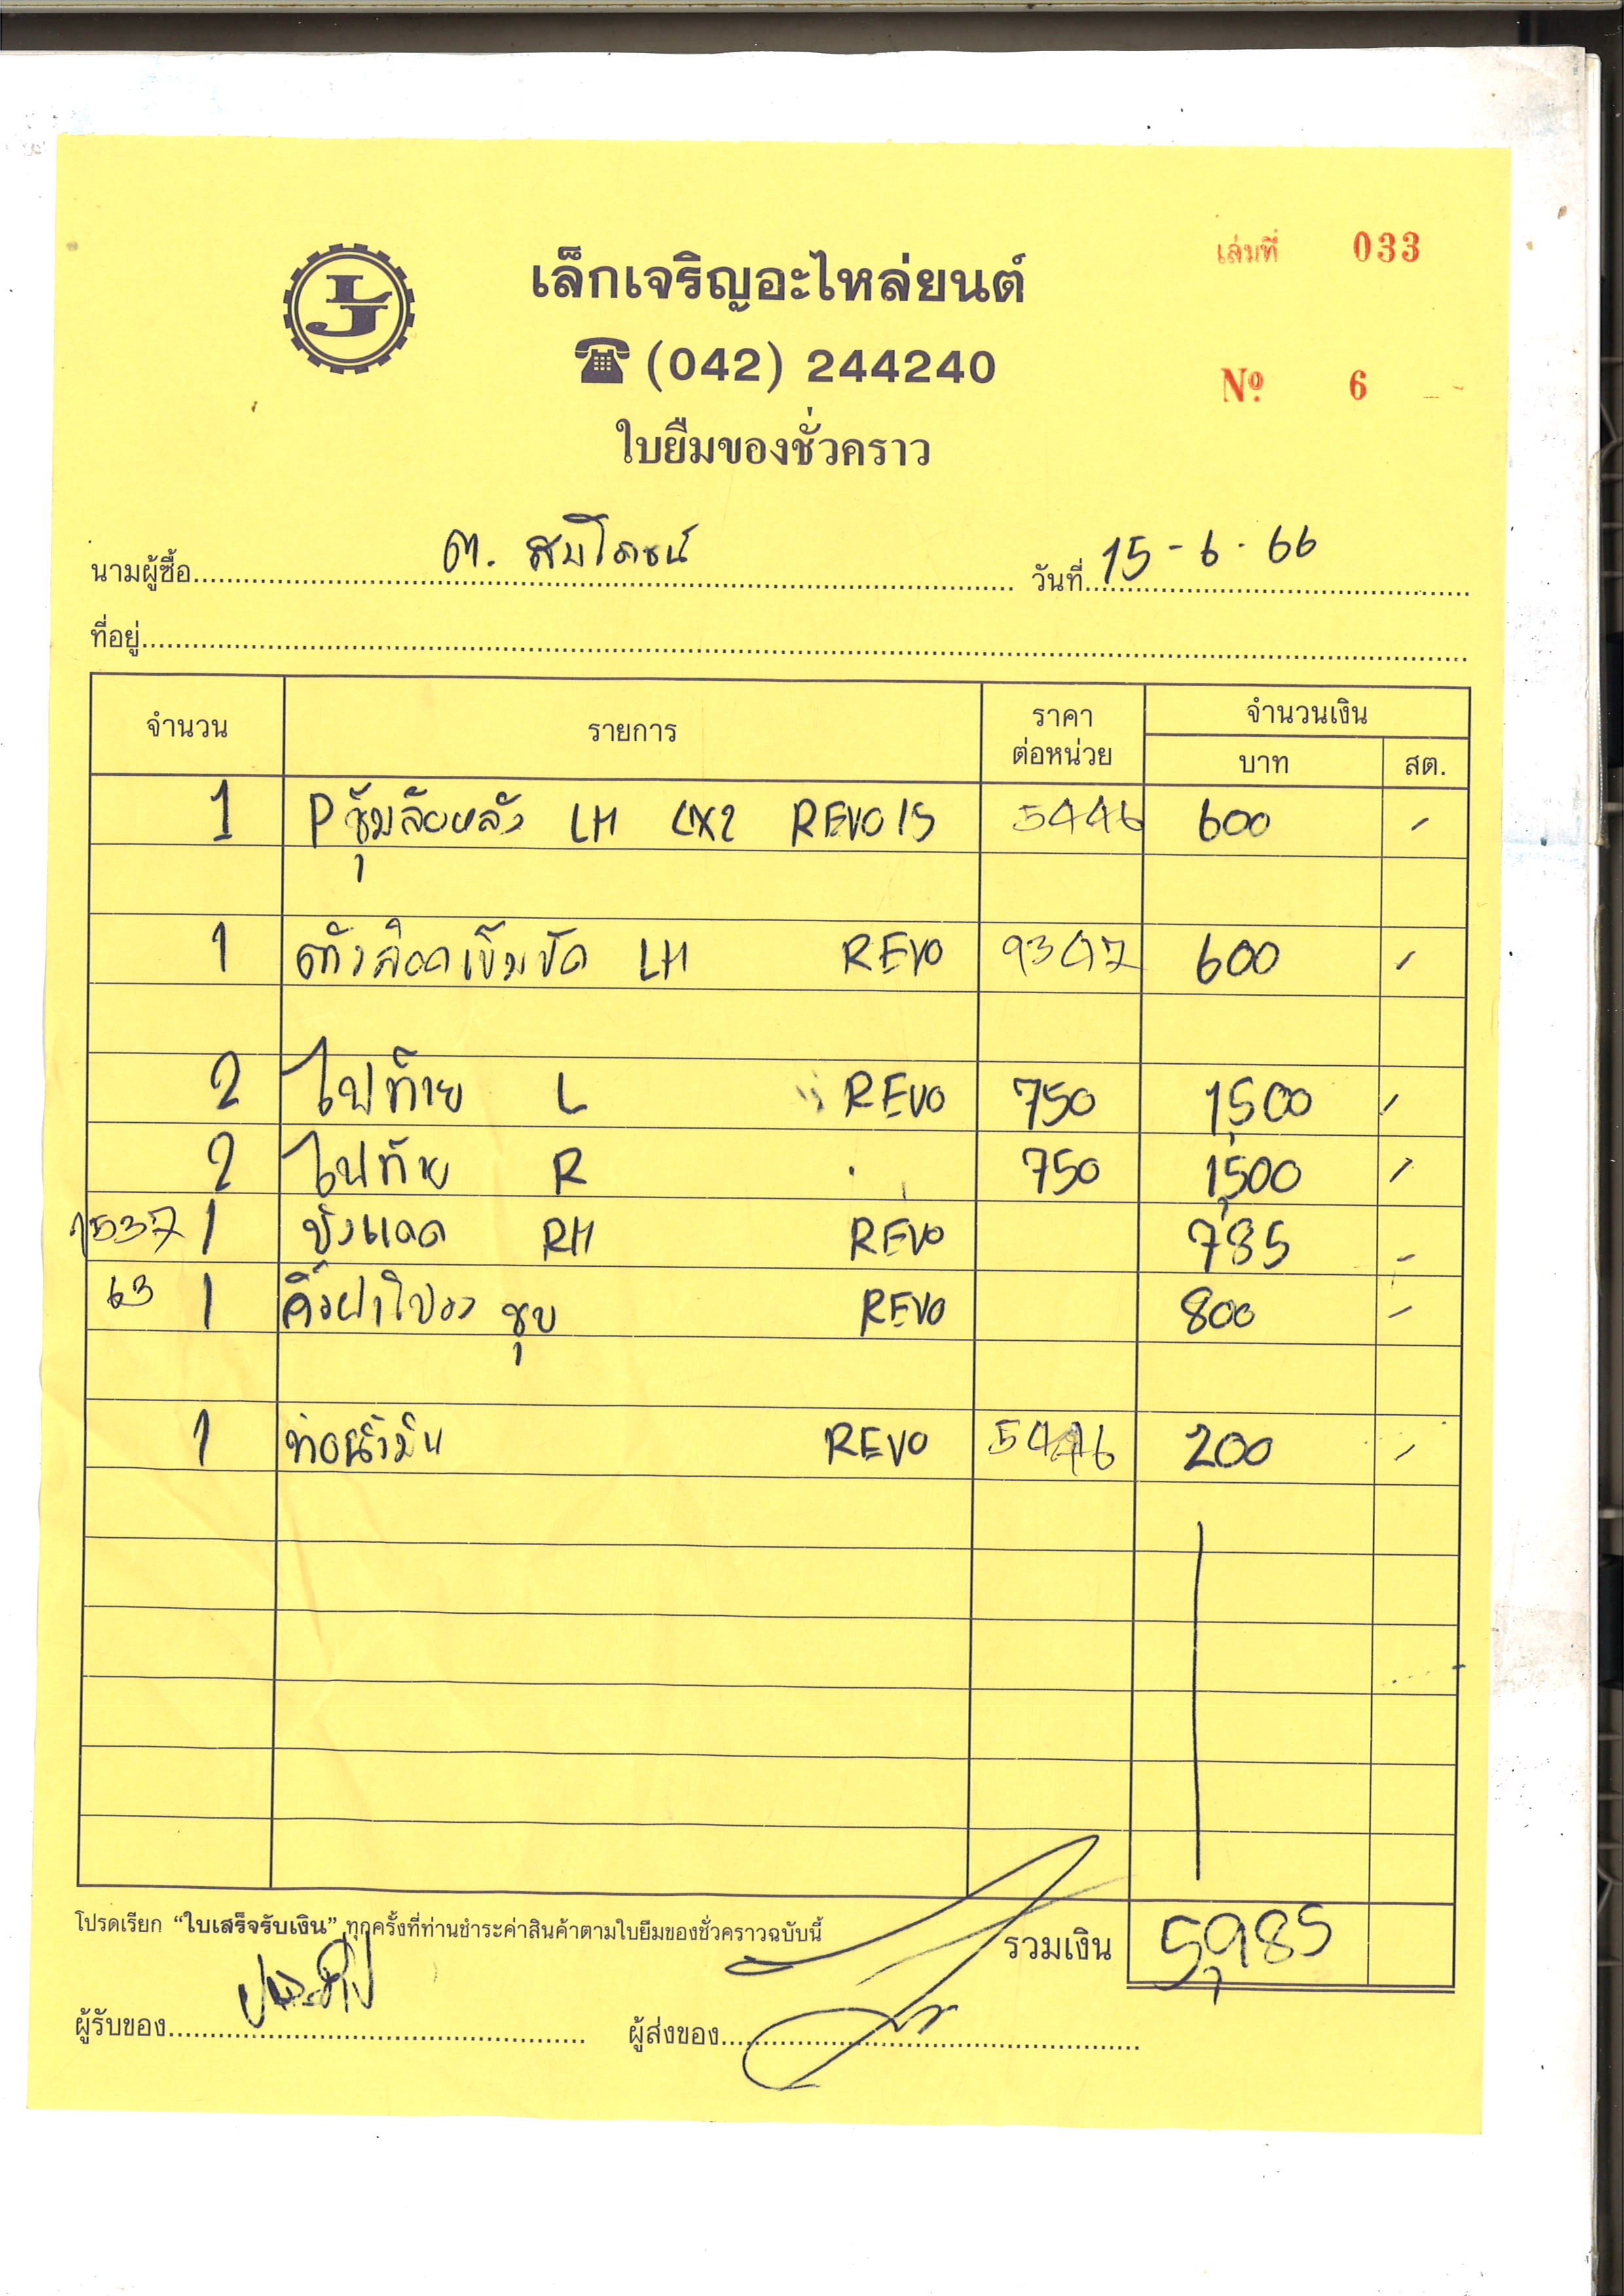 เล็กเจริญอะไหล่ยนต์
เล่มที่ 033
(042) 244240
Nº. 6
ใบยืมของชั่วคราว
นามผู้ซื้อ ต. สมโภชน์ วันที่ 15-6-66
ที่อยู่
จำนวน รายการ ราคาต่อหน่วย จำนวนเงิน
บาท สต.
1 P ซุ้มล้อหลัง LH 4X2 REVO 15 5446 600 -
1 LH REVO 600 -
2 ไฟท้าย L REVO 750 1,500 -
2 ไฟท้าย R " 750 1,500 -
1537 1 บังแดด RH REVO 785 -
63 1 คิ้วฝาไฟ ชุบ REVO 800 -
1 ท่อน้ำมัน REVO 5446 200 -
โปรดเรียก “ใบเสร็จรับเงิน” ทุกครั้งที่ท่านชำระค่าสินค้าตามใบยืมของชั่วคราวฉบับนี้
รวมเงิน 5,985
ผู้รับของ ผู้ส่งของ